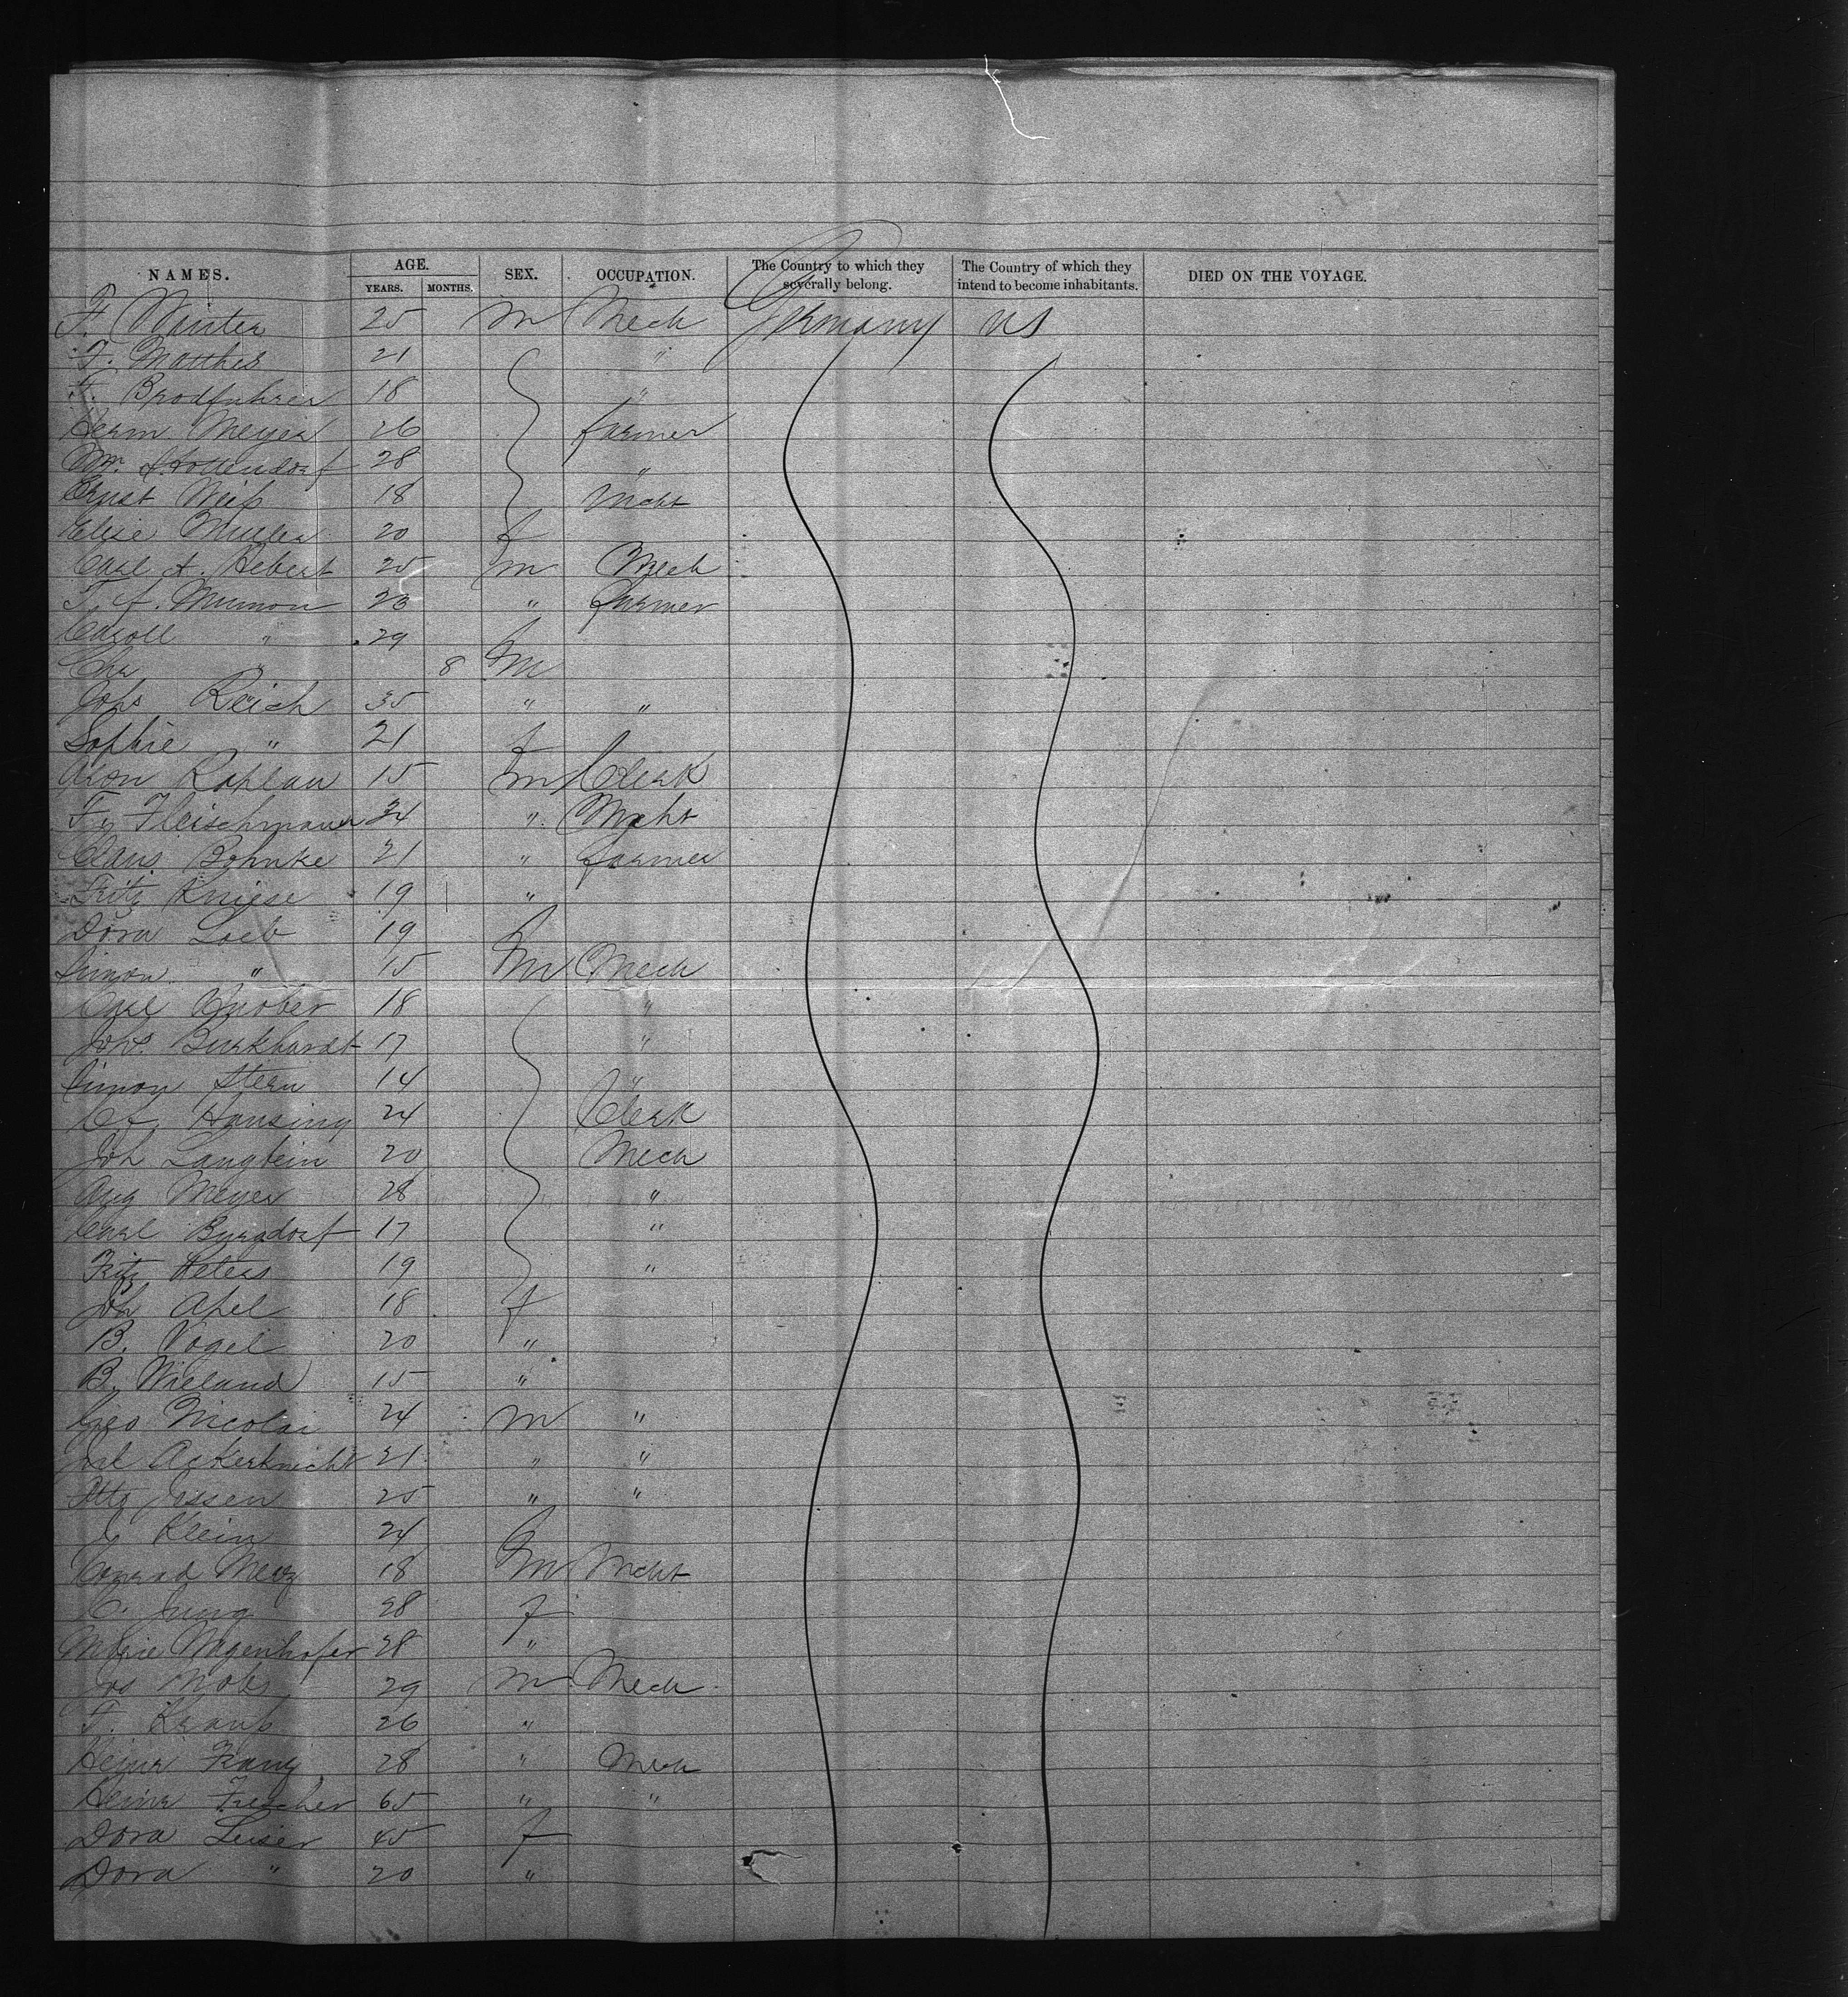 NAMES. AGE. SEX. OCCUPATION. The Country to which they severally belong. The Country of which they intend to become inhabitants. DIED ON THE VOYAGE.
YEARS. MONTHS.
F. Winter 25 m Mech Germany US
F. Matthes 21 "
F. Brodfuhrer 18 "
Herm Meyer 26 farmer
Wm. Hollendorf 28 "
Ernst Weiß 18 Mcht
Elise Muller 20 f
Carl A. Hebert 25 m Mech
T. f. Mumon 23 " farmer
Caroll " 29 f
Chr " 8 M
Johs Reich 35 " "
Sophie " 21 f
Aron Kaplan 15 m Clerk
Fr Fleischmann 34 " Mcht
Claus Bohnke 21 " farmer
Fritz Kniese 19 "
Dora Loeb 19 f
Simon " 15 m Mech
Carl Gruber 18 "
Johs. Burkhardt 17 "
Simon Stern 14 "
Hansing 24 Clerk
Joh Langbein 20 Mech
Aug Meyer 28 "
Carl Burgdorf 17 "
Fritz Peters 19 "
Joh Apel 18 f
B. Vogel 20 "
B. Wieland 15 "
Geo Nicolai 24 m "
Ackerknecht 21 " "
Otto Jessen 25 " "
C Klein 24 f
Conrad Merz 18 m Mcht
C. Jung 28 f
Marie Wagenhofer 28 "
Jos Mobs 29 m Mech
F. Krauß 26 "
Heinr Franz 28 " Mech
Heinr Frescher 65 " "
Dora Leiser 45 f
Dora " 20 "